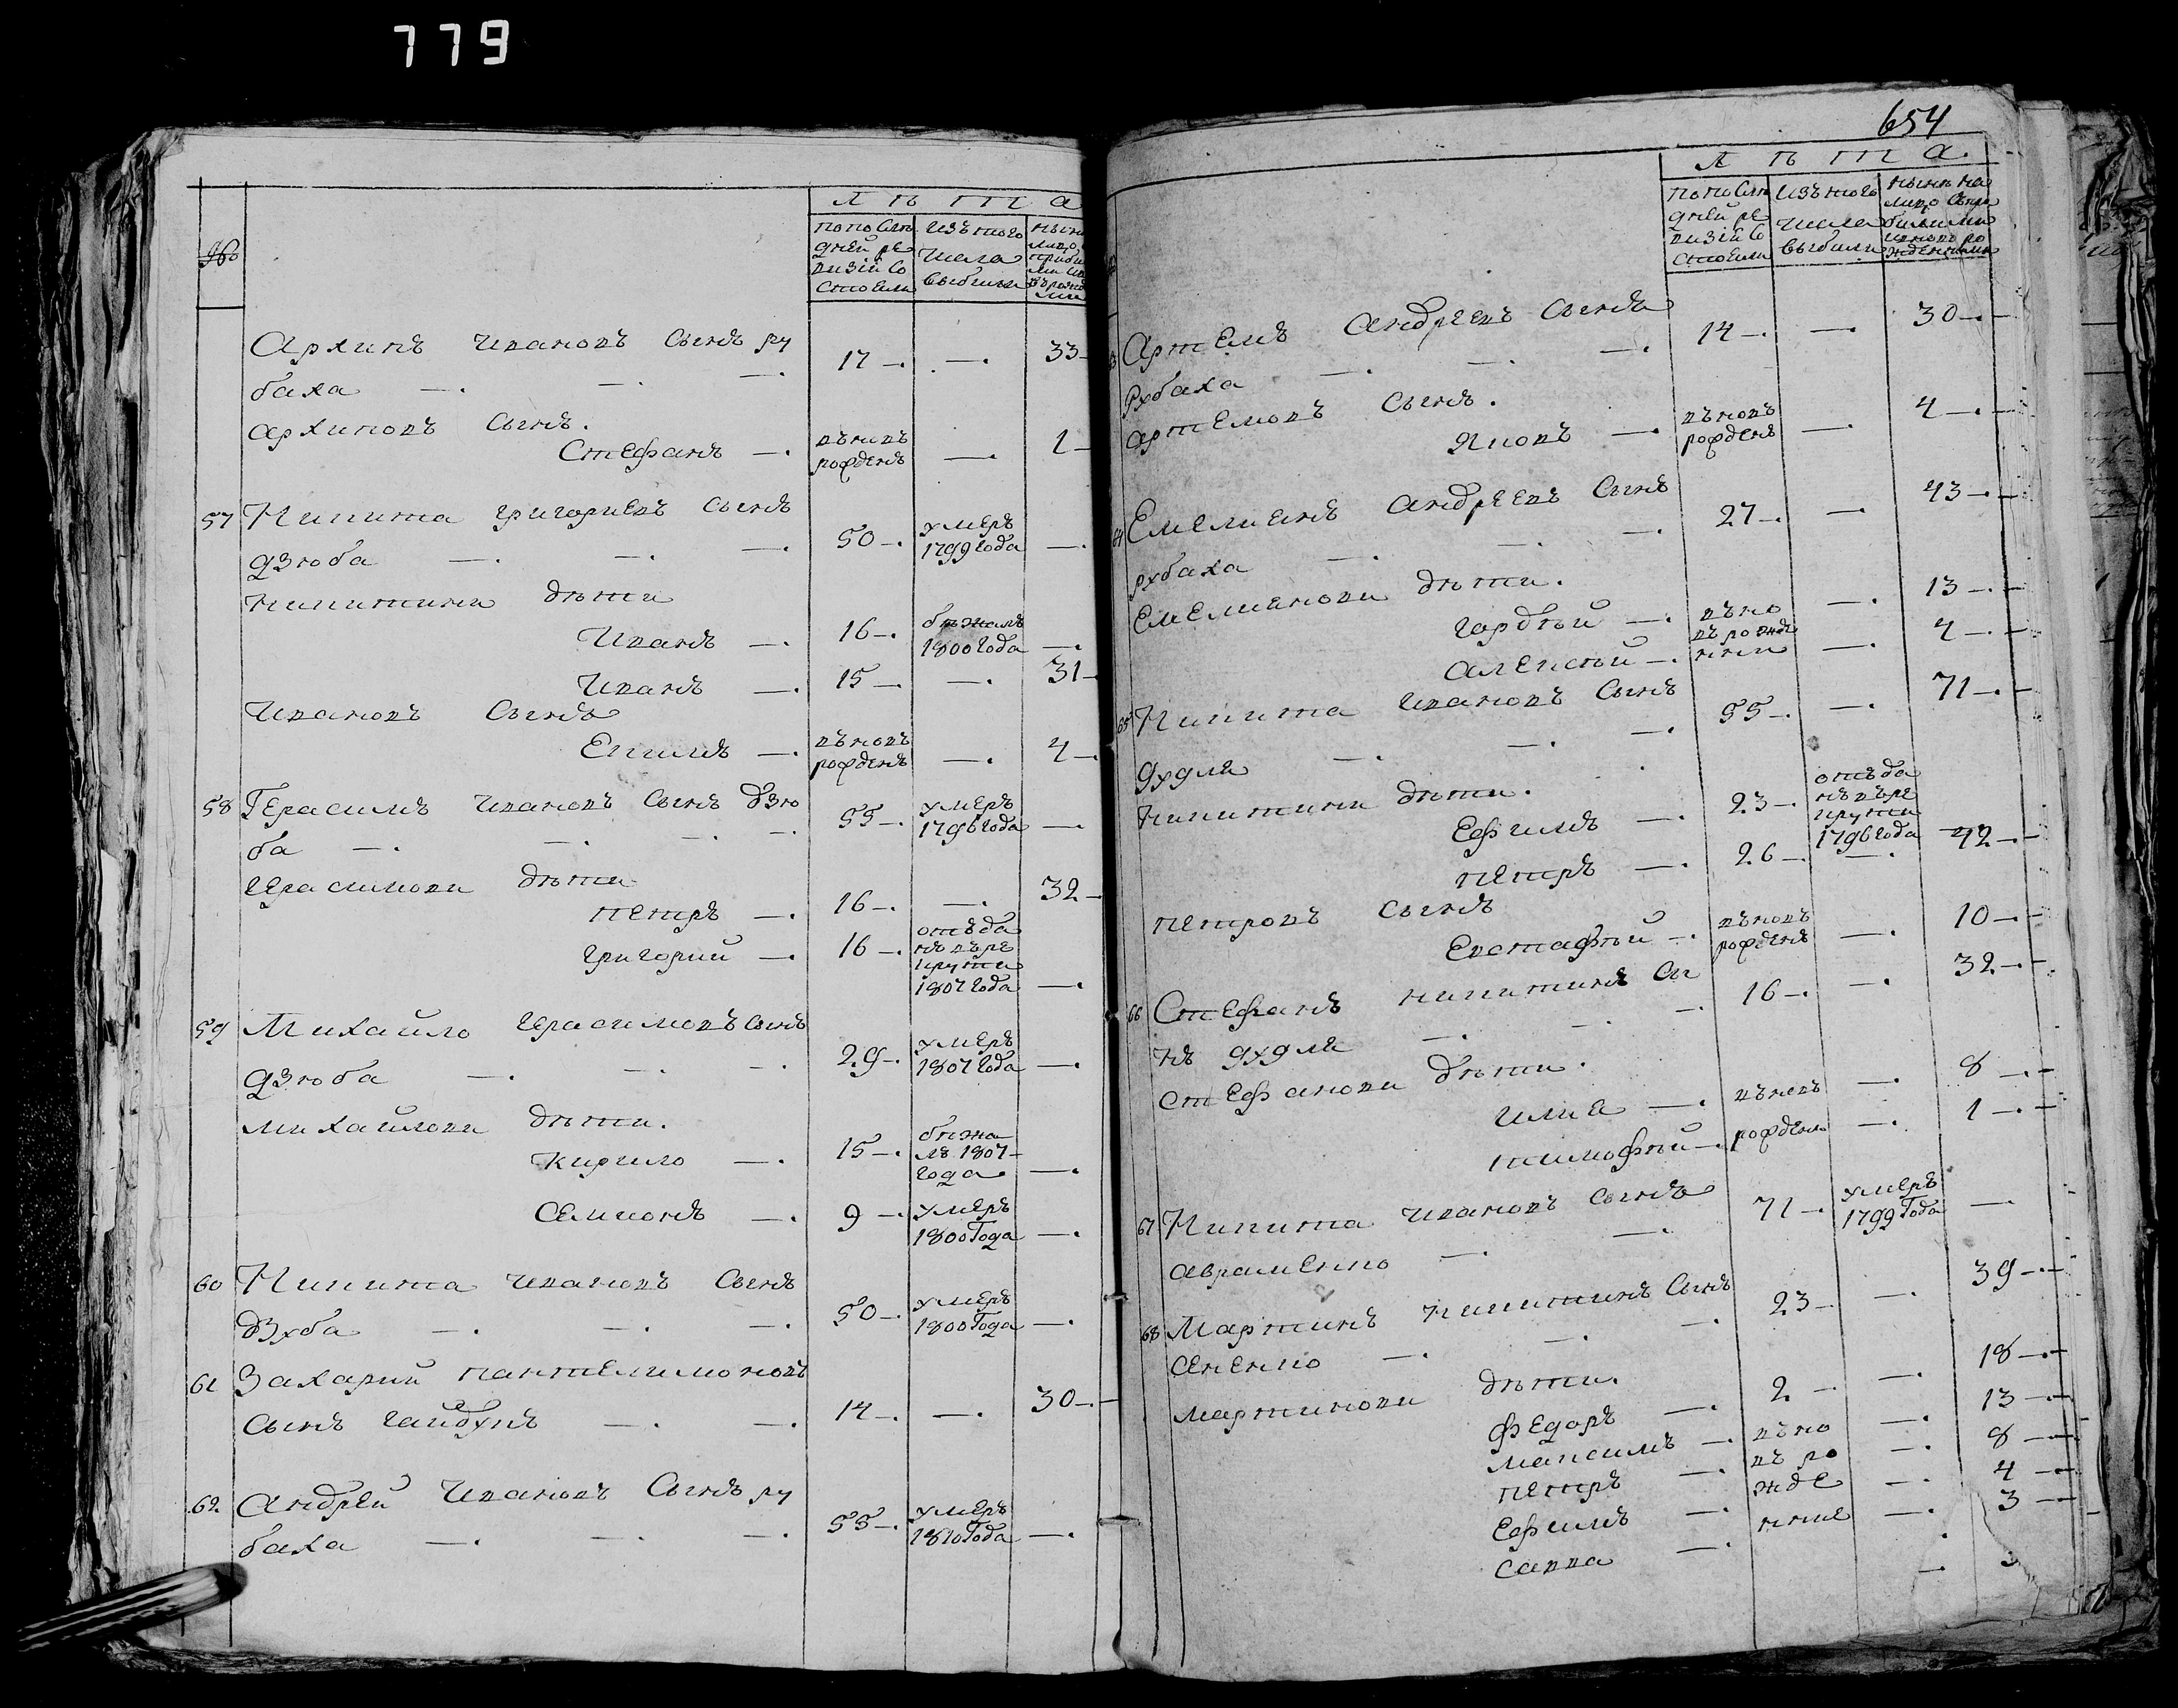 779
654
№
Л ѣ т а
по послѣ
дней ре
визіи со
стояли
изъ того
числа
выбыли
Архипъ Ивановъ сынъ Ру
баха —. —. —. 17 —. —. 33
Архиповъ сынъ.
Стефанъ —. вновъ рожденъ —. 1
57 Никита Григориевъ сынъ
Дзюба —. —. —. 50 —. умеръ 1799 года —.
Никитини дѣти
Иванъ —. 16 —. бѣжалъ 1800 года —.
Иванъ —. 15 —. —. 31
Ивановъ сынъ
Екимъ —. вновъ рожденъ —. 4
58 Герасимъ Ивановъ сынъ Дзю
ба —. —. —. —. 55 —. умеръ 1796 года —.
Герасимови дѣти
Петръ —. 16 —. —. 32
Григорий —. 16 —. отъда нъ въ ре крути 1807 года —.
59 Михайло Герасимовъ сынъ
Дзюба —. —. —. 29 —. умеръ 1807 года —.
Михайлови дѣти.
Кирило —. 15 —. бѣжа лъ 1807 года —.
Семионъ —. 9 —. умеръ 1800 года —.
60 Никита Ивановъ сынъ
Дзуба —. —. —. 50 —. умеръ 1800 года —.
61 Захарий Пантелимоновъ
сынъ Гайдукъ —. —. 14 —. —. 30 —.
62 Андрей Ивановъ сынъ Ру
баха —. —. —. 55 —. умеръ 1810 года —.
Л ѣ т а
по послѣ
дней ре
визіи со
стояли
изъ того
числа
выбыли
нынѣ на
лицо съ при
былыми
и вновъ ро
жденными
Артемъ Андреевъ сынъ
Рубаха —. —. —. 14 —. —. 30 —.
Артемовъ сынъ.
Яковъ —. вновъ рожденъ —. 4 —.
Емелиенъ Андреевъ сынъ
Рубаха —. —. —. 27 —. —. 43 —.
Емелиенови дѣти.
Гордѣй —. въно въ рожде —. 13 —.
Алексѣй —. нни —. 4 —.
65 Никита Ивановъ сынъ
Дудля —. —. —. 55 —. —. 71 —.
Никитини дѣти.
Ефимъ —. 23 —. отъда нъ въ ре крути 1796 года
Петръ —. 26 —. —. 42 —.
Петровъ сынъ
Евстафѣй —. вновъ рожденъ —. 10 —.
66 Стефанъ Никитинъ сы
нъ Дудля —. —. —. 16 —. —. 32 —.
Стефанови дѣти.
Илиа —. вновъ —. 8 —.
Тимофѣй —. рожден —. 1 —.
67 Никита Ивановъ сынъ
Авраменко —. —. 71 —. умеръ 1799 года —.
68 Мартинъ Никитинъ сынъ
Сененко —. —. —. 23 — —. 39 —.
Мартинови дѣти.
Федоръ —. 2 — —. 18 —.
Максимъ —. въно —. 13 —.
Петръ —. въ ро —. 8 —
Ефимъ —. жде —. 4 —
Савва —. нние —. 3 —